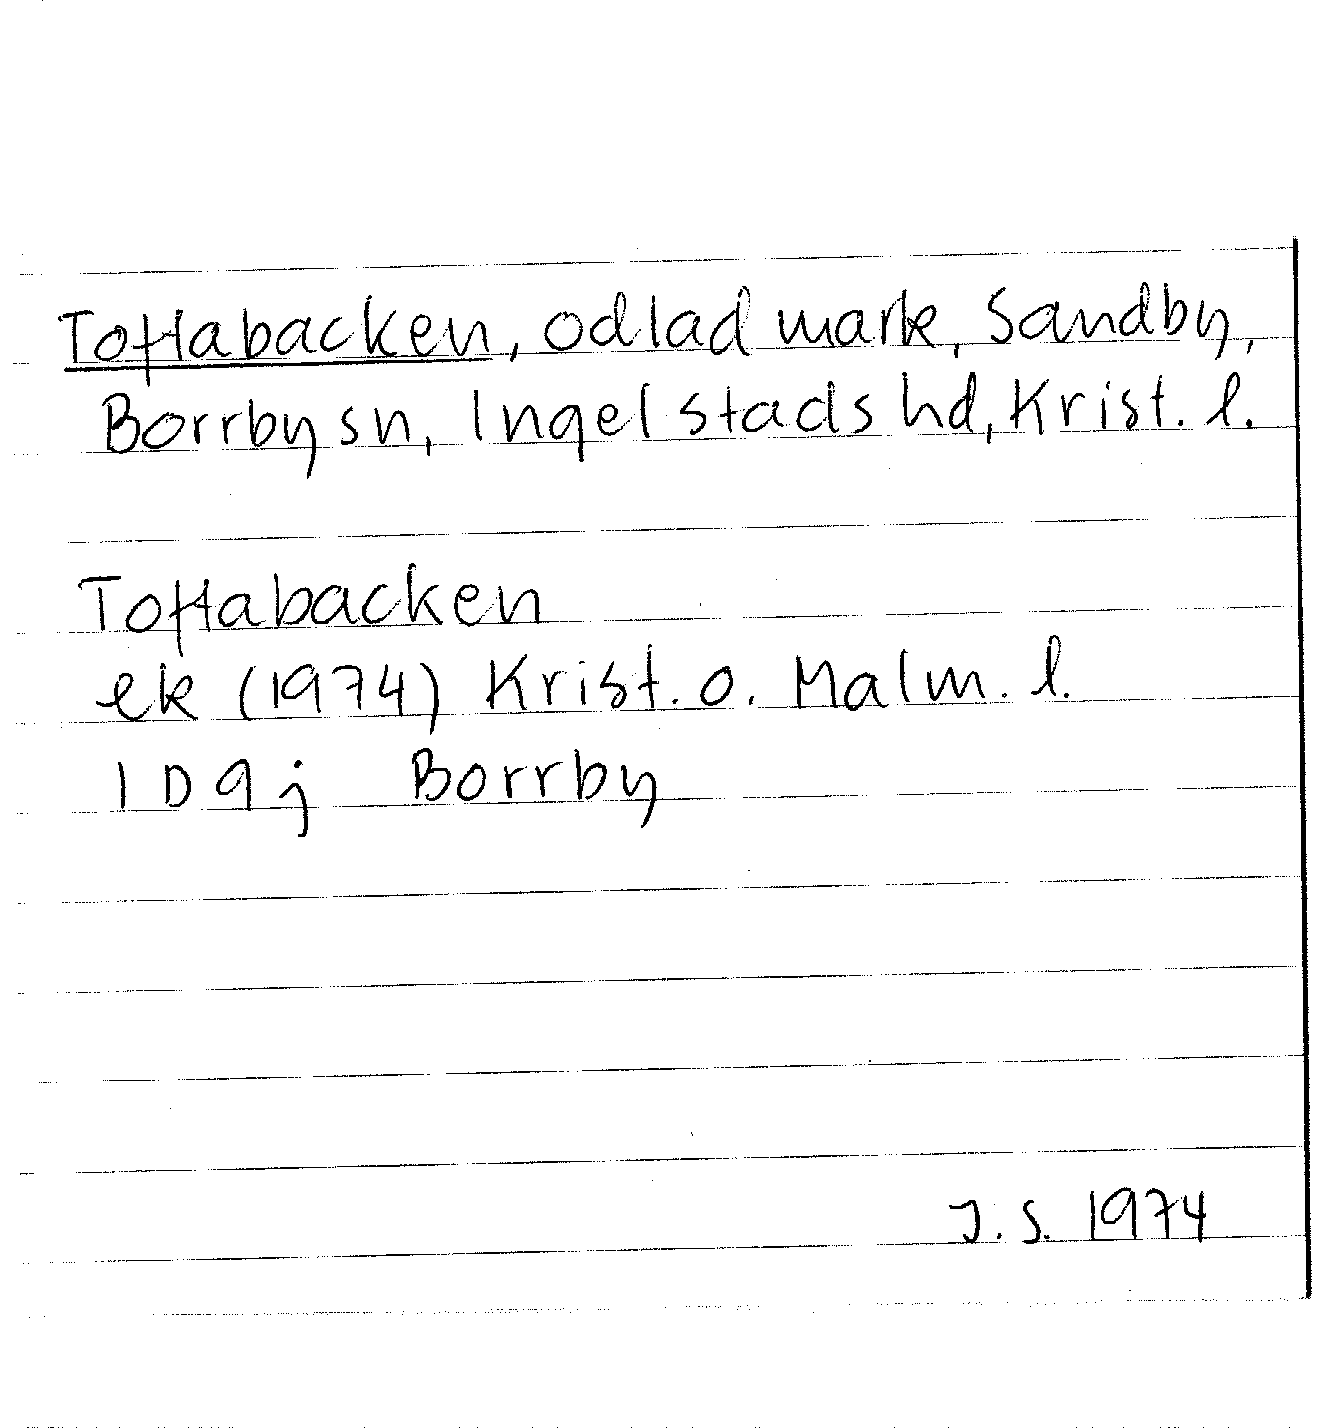 Toftabacken, odlad mark, Sandby,
Borrby sn, Ingelstads hd, Krist. l.
Toftabacken
ek (1974) Krist. o. Malm. l.
1D9j Borrby
J.S. 1974